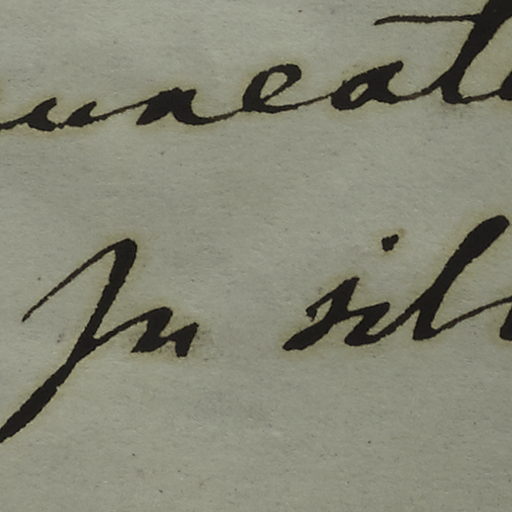 uneat
In sil